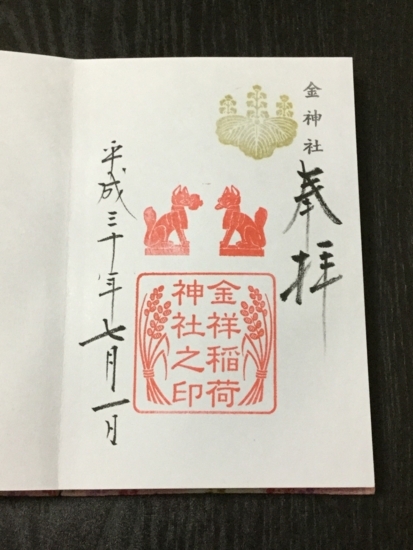 金神社
奉拝
金祥稲荷
神社之印
平成三十年七月一日